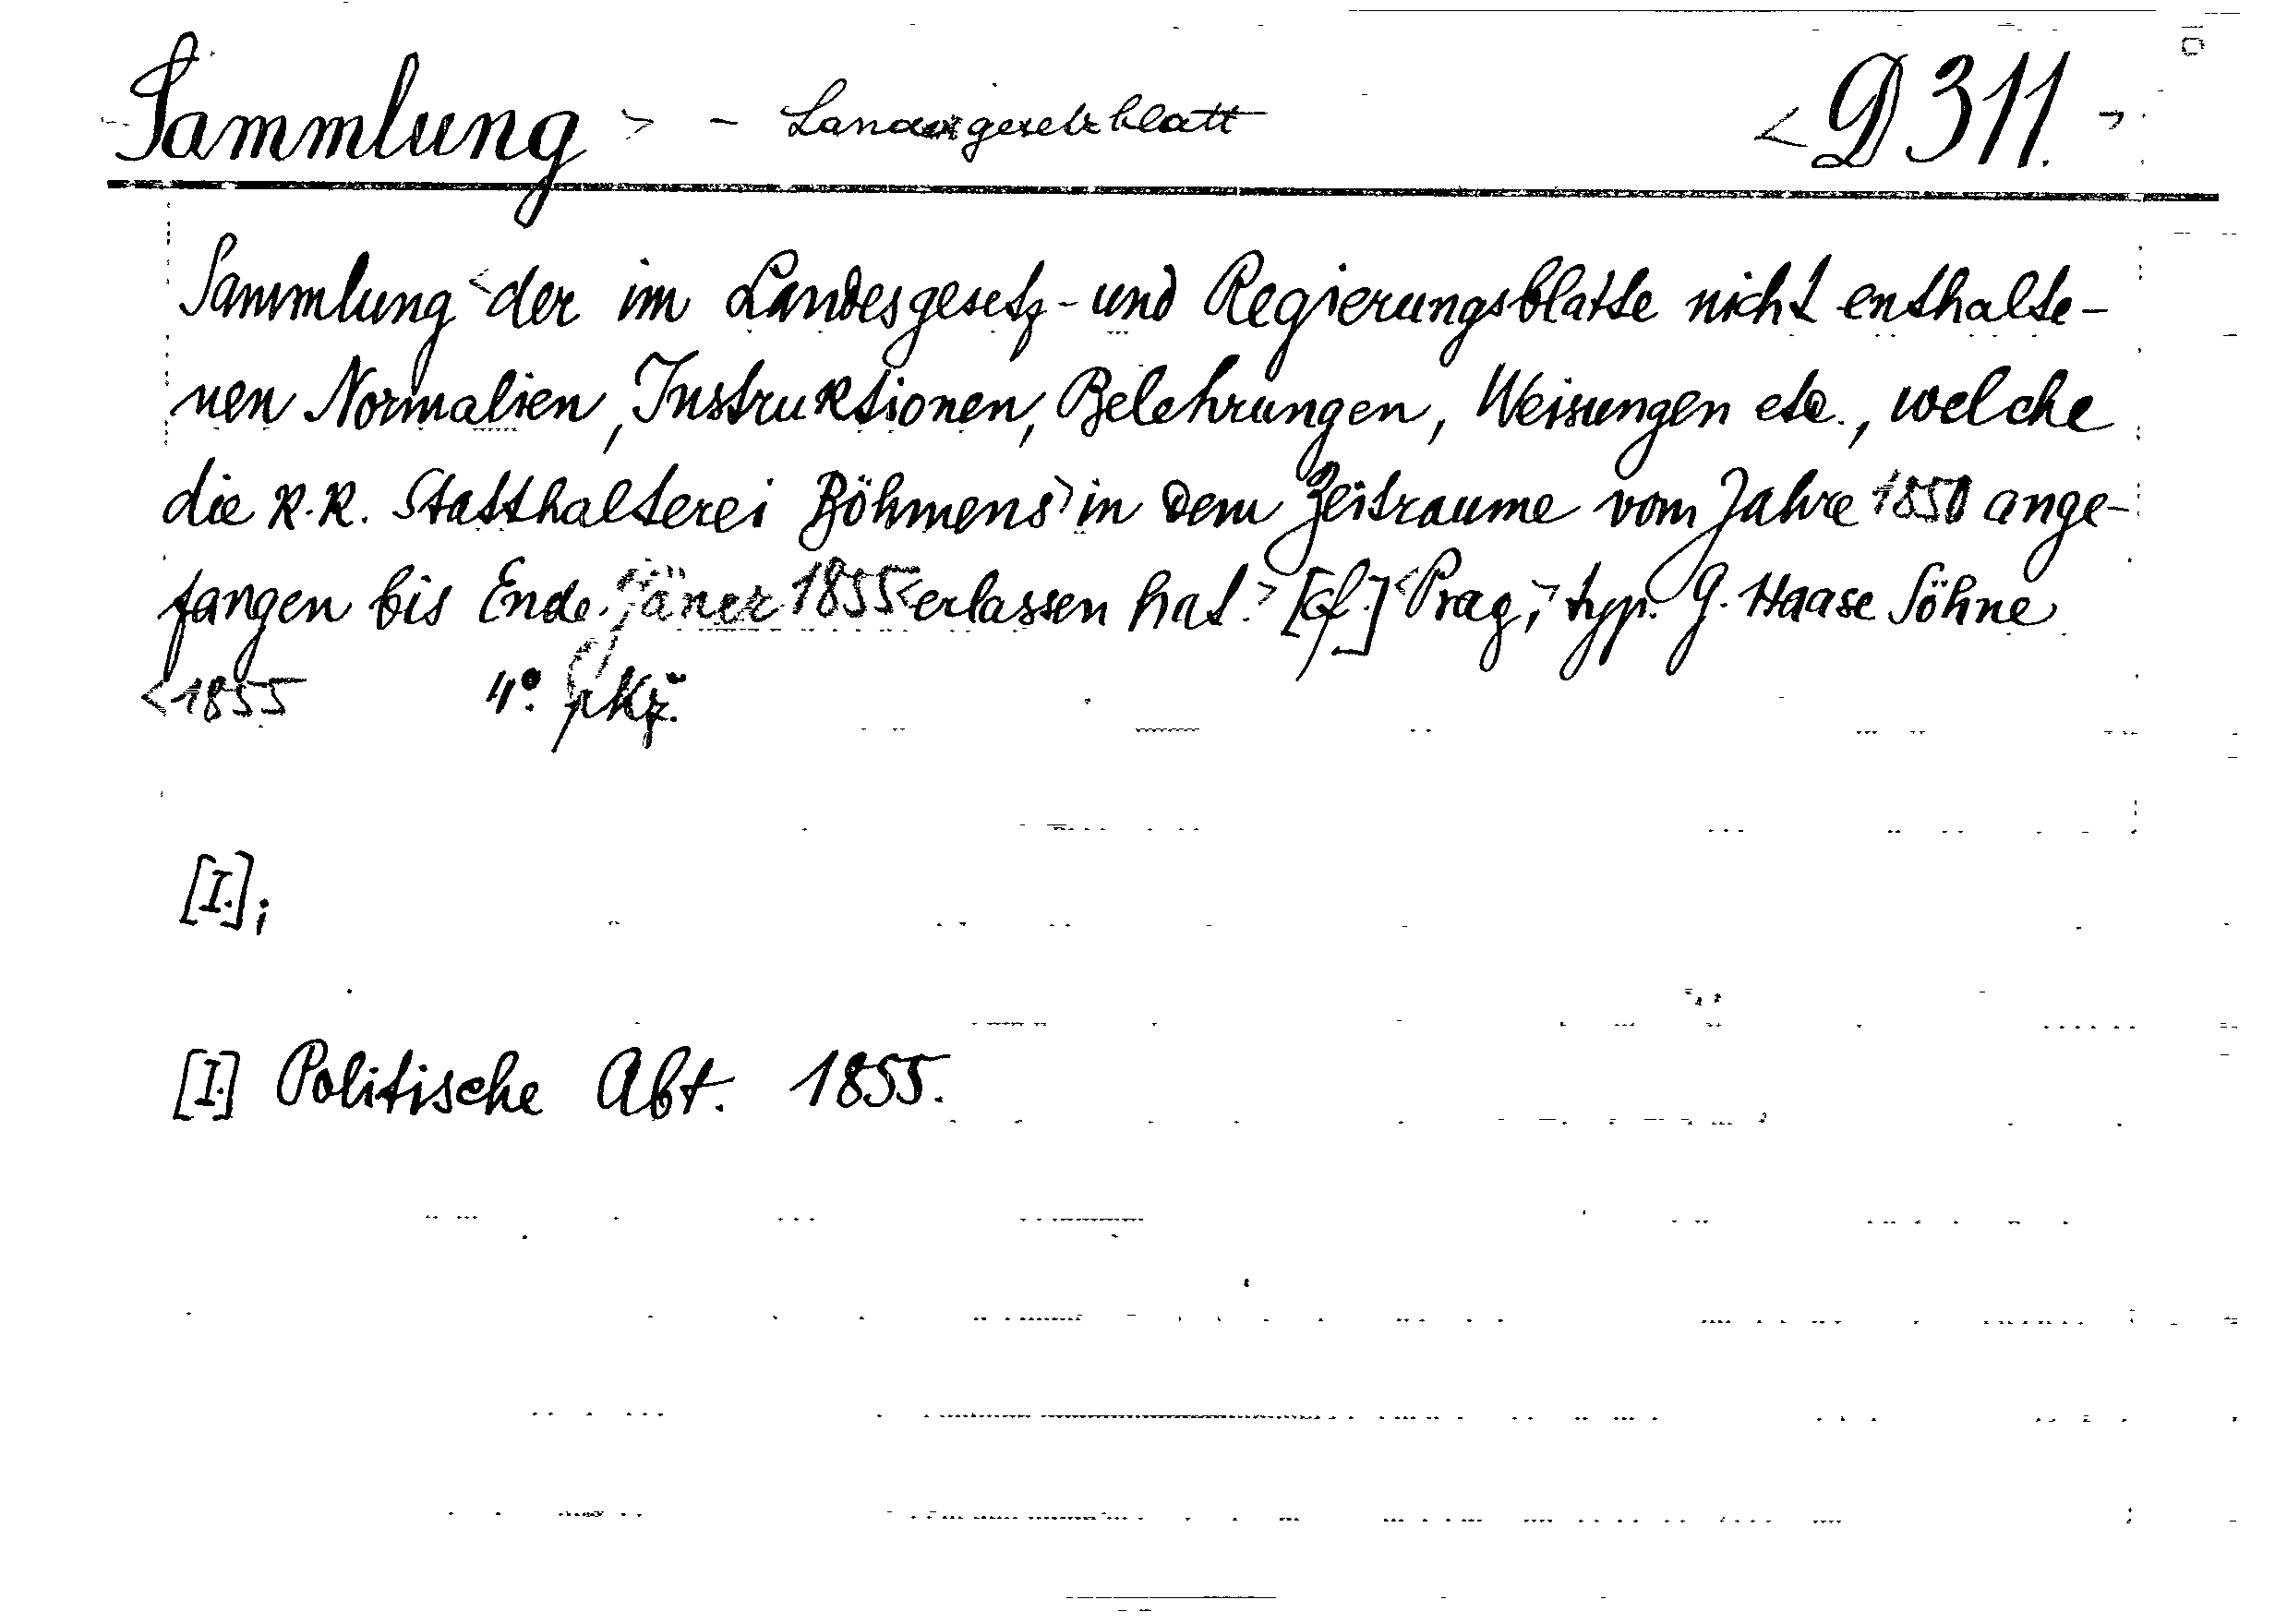 Sammlung > - Landesgesetzblatt <D 311.>
Sammlung <der im Landesgesetz- und Regierungsblatte nicht enthalte-
nen Normalien, Instruktionen, Belehrungen, Weisungen etc., welche
die k.k. Statthalterei Böhmens> in dem Zeitraume vom Jahre 1850 ange-
fangen bis Ende Jäner 1855 <erlassen hat.> [cf.] <Prag,> typ. G. Haase Söhne
<1855 4°.
[I.];
[I.] Politische Abt. 1855.